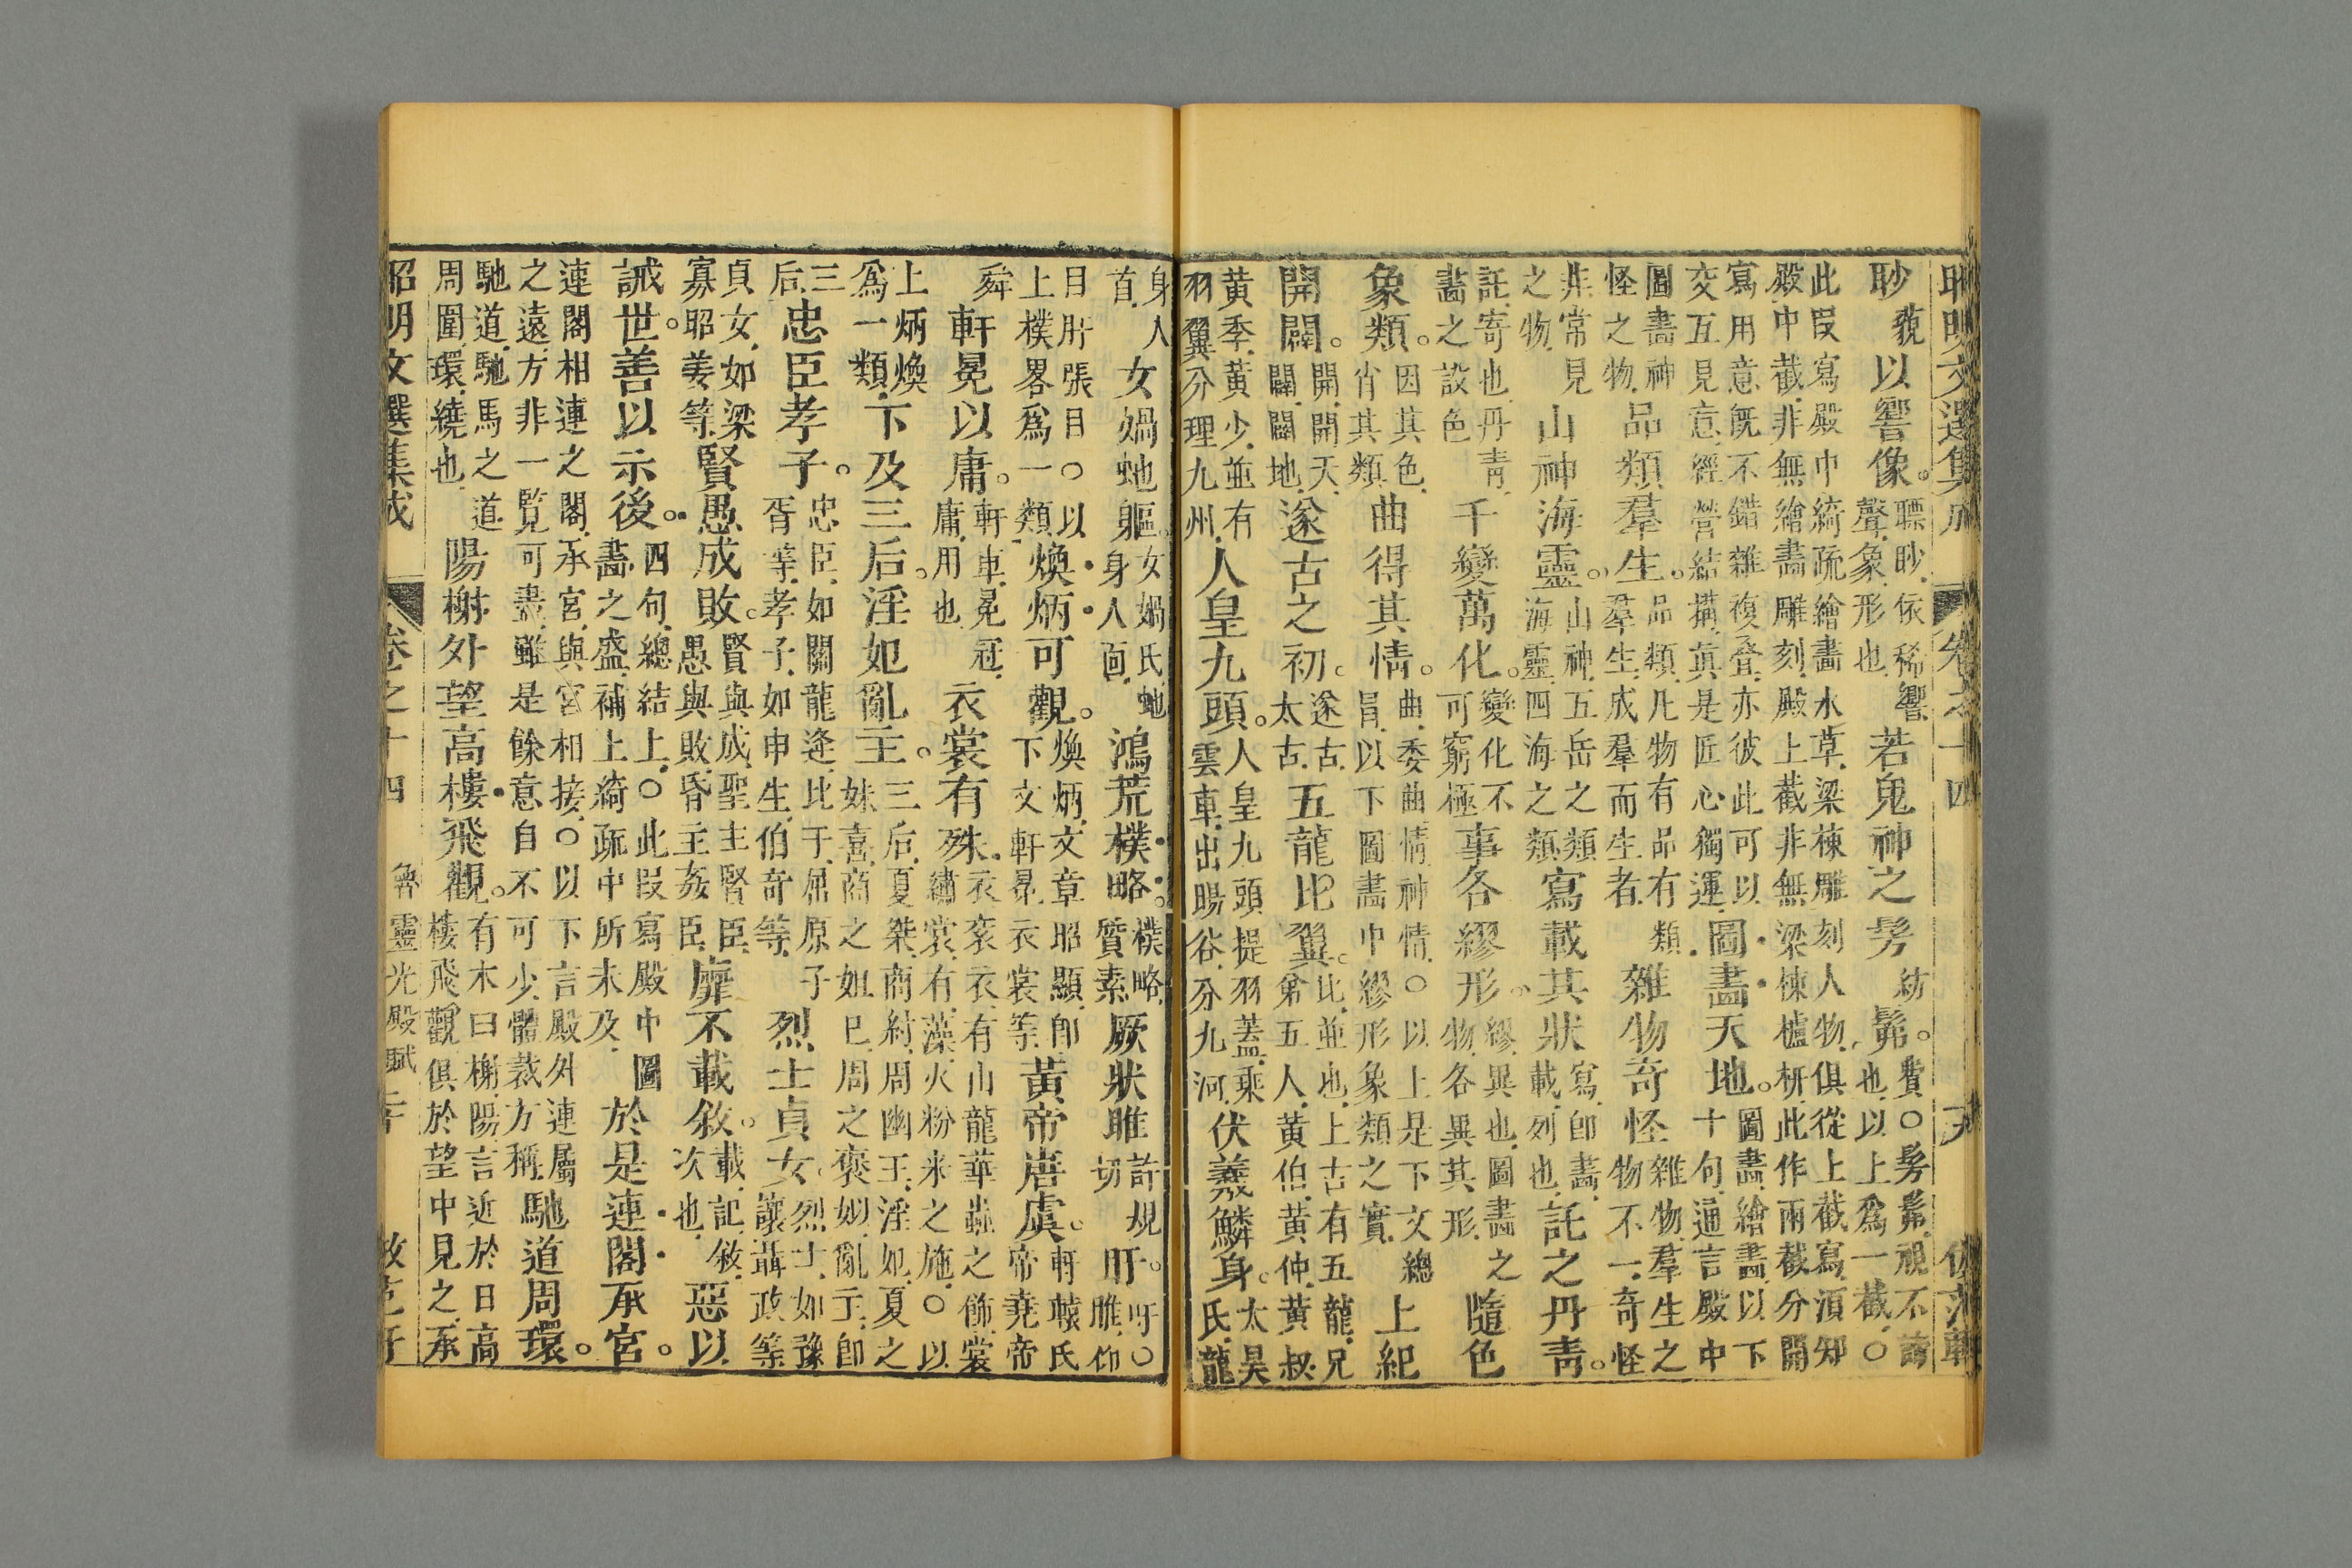 昭明文選集成 卷之十四
眇藐以響像。聽眇依稀響聲象形也若鬼神之髣紡髴。費○髣髴視不諟也以上爲一截○
此段寫殿中綺疏繪畫水草梁棟雕刻人物俱從上截寫須知殿中截非無繪畫雕刻殿上截非無梁棟櫨枅此作兩截分開
寫用意旣不錯雜複疊亦彼此可以交互見意經營結搆眞是匠心獨運圖畫天地。圖畫繪畫以下十句通言殿中
圖畫神怪之物品類羣生。品類凡物有品有類羣生成羣而生者雜物奇怪雜物羣生之物不一奇怪
非常見之物山神海靈。山神五岳之類海靈四海之類寫載其狀寫卽畫載列也託之丹靑。
託寄也丹靑畫之設色千變萬化。變化不可窮極事各繆形。繆異也圖畫之物各異其形隨色
象類。因其色肖其類曲得其情。曲委曲情神情○以上是下文總冒以下圖畫中繆形象類之實上紀
開闢。開開天闢闢地遂古之初。遂古太古五龍比翼。比並也上古有五龍兄弟五人黃伯黃仲黃叔
黃季黃少並有羽翼分理九州人皇九頭。人皇九頭提羽蓋乘雲車出暘谷分九河伏羲鱗身。太昊氏龍
身人首女媧虵軀。女媧氏虵身人面鴻荒樸略。樸略質素厥狀睢許規切盱。吁○睢仰
目盱張目○以上樸畧爲一類煥炳可觀。煥炳文章昭顯卽下文軒冕衣裳等黃帝唐虞。軒轅氏帝堯帝
舜軒冕以庸。軒車冕冠庸用也衣裳有殊。衣衮衣有山龍華蟲之飾裳繡裳有藻火粉米之施○以
上炳煥爲一類下及三后。淫妃亂主。三后夏桀商紂周幽王淫妃夏之妹喜商之妲己周之褒姒亂主卽
三后忠臣孝子。忠臣如關龍逄比干屈原子胥等孝子如申生伯奇等烈士貞女。烈士如豫讓聶政等
貞女如梁寡昭姜等賢愚成敗。賢與成聖主賢臣愚與敗昏主姦臣靡不載敘。載記敘次也惡以
誡世。善以示後。四句總結上○此段寫殿中圖畫之盛補上綺疏中所未及於是連閣承宮。
連閣相連之閣承宮與宮相接○以下言殿外連屬之遠方非一覧可盡雖是餘意自不可少體裁方稱馳道周環。
馳道馳馬之道周圍環繞也陽榭外望高樓飛觀。有木曰榭陽言近於日高樓飛觀俱於望中見之承
昭明文選集成 卷之十四 魯靈光殿賦